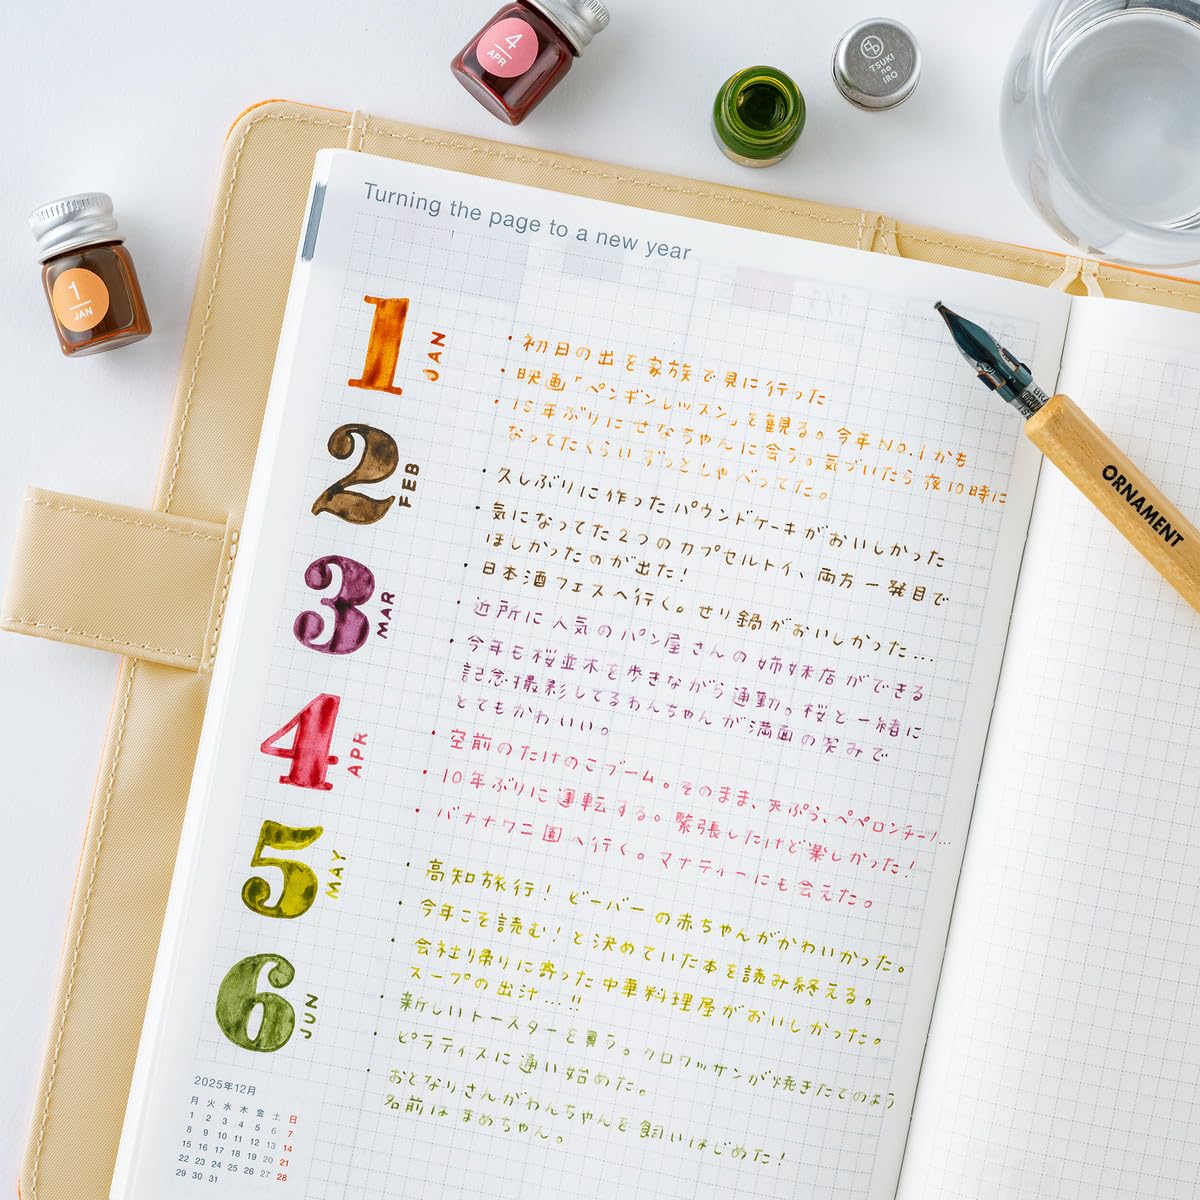 4
APR
TSUKI
no
IRO
1
JAN
Turning the page to a new year
1 JAN
・初日の出を家族で見に行った
・映画「ペンギンレッスン」を観る。今年NO.1かも
・15年ぶりにせなちゃんに会う。気づいたら夜10時に
なってたくらいずっとしゃべってた。
2 FEB
・久しぶりに作ったパウンドケーキがおいしかった
・気になってた2つのカプセルトイ、両方一発目で
ほしかったのが出た!
・日本酒フェスへ行く。せり鍋がおいしかった…
3 MAR
・近所に人気のパン屋さんの姉妹店ができる
・今年も桜並木を歩きながら通勤。桜と一緒に
記念撮影してるわんちゃんが満面の笑みで
とてもかわいい。
4 APR
・空前のたけのこブーム。そのまま、天ぷら、ペペロンチーノ…
・10年ぶりに運転する。緊張したけど楽しかった!
・バナナワニ園へ行く。マナティーにも会えた。
5 MAY
・高知旅行! ビーバーの赤ちゃんがかわいかった。
・今年こそ読む!と決めていた本を読み終える。
・会社帰りに寄った中華料理屋がおいしかった。
スープの出汁…!!
6 JUN
・新しいトースターを買う。クロワッサンが焼きたてのよう
・ピラティスに通い始めた。
・おとなりさんがわんちゃんを飼いはじめた!
名前はまめちゃん。
2025年12月
月 火 水 木 金 土 日
1 2 3 4 5 6 7
8 9 10 11 12 13 14
15 16 17 18 19 20 21
22 23 24 25 26 27 28
29 30 31
ORNAMENT